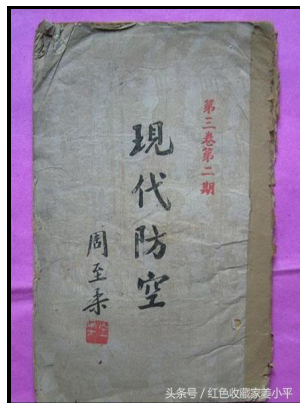 第三卷第二期
現代防空
周至柔
头条号／红色收藏家姜小平